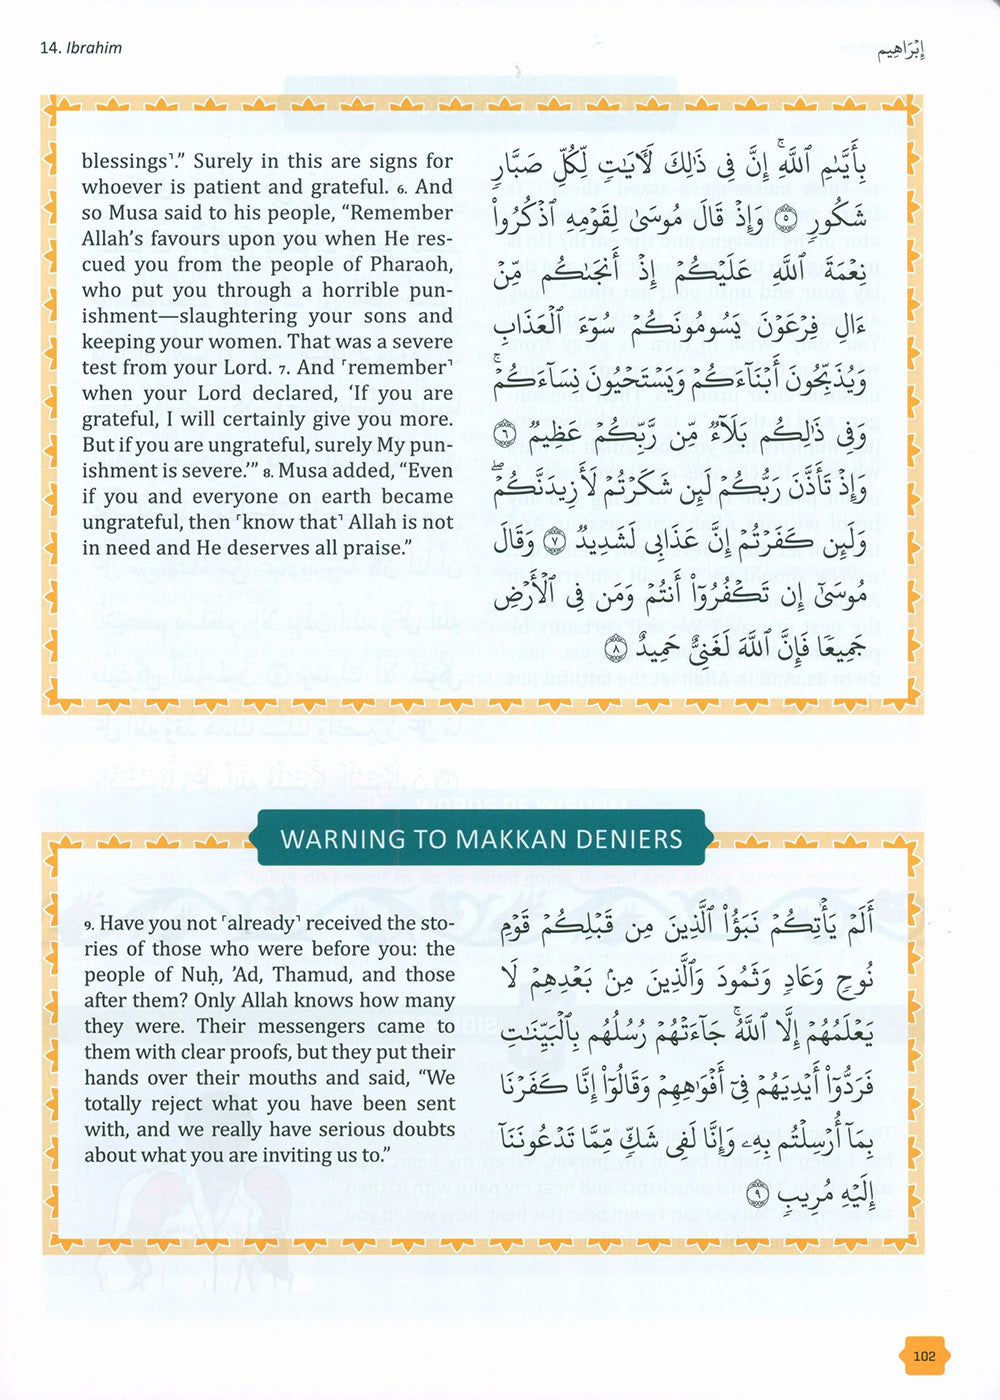 14. Ibrahim
إِبْرَاهِيم
blessings⸣.” Surely in this are signs for
whoever is patient and grateful. 6. And
so Musa said to his people, “Remember
Allah’s favours upon you when He res-
cued you from the people of Pharaoh,
who put you through a horrible pun-
ishment—slaughtering your sons and
keeping your women. That was a severe
test from your Lord. 7. And ⸢remember⸣
when your Lord declared, ‘If you are
grateful, I will certainly give you more.
But if you are ungrateful, surely My pun-
ishment is severe.’” 8. Musa added, “Even
if you and everyone on earth became
ungrateful, then ⸢know that⸣ Allah is not
in need and He deserves all praise.”
بِأَيَّىٰمِ ٱللَّهِ ۚ إِنَّ فِى ذَٰلِكَ لَـَٔايَـٰتٍ لِّكُلِّ صَبَّارٍ
شَكُورٍ ۝٥ وَإِذْ قَالَ مُوسَىٰ لِقَوْمِهِ ٱذْكُرُوا۟
نِعْمَةَ ٱللَّهِ عَلَيْكُمْ إِذْ أَنجَىٰكُم مِّنْ
ءَالِ فِرْعَوْنَ يَسُومُونَكُمْ سُوٓءَ ٱلْعَذَابِ
وَيُذَبِّحُونَ أَبْنَآءَكُمْ وَيَسْتَحْيُونَ نِسَآءَكُمْ ۚ
وَفِى ذَٰلِكُم بَلَآءٌ مِّن رَّبِّكُمْ عَظِيمٌ ۝٦
وَإِذْ تَأَذَّنَ رَبُّكُمْ لَئِن شَكَرْتُمْ لَأَزِيدَنَّكُمْ ۖ
وَلَئِن كَفَرْتُمْ إِنَّ عَذَابِى لَشَدِيدٌ ۝٧ وَقَالَ
مُوسَىٰٓ إِن تَكْفُرُوٓا۟ أَنتُمْ وَمَن فِى ٱلْأَرْضِ
جَمِيعًا فَإِنَّ ٱللَّهَ لَغَنِىٌّ حَمِيدٌ ۝٨
WARNING TO MAKKAN DENIERS
9. Have you not ⸢already⸣ received the sto-
ries of those who were before you: the
people of Nuḥ, ’Ad, Thamud, and those
after them? Only Allah knows how many
they were. Their messengers came to
them with clear proofs, but they put their
hands over their mouths and said, “We
totally reject what you have been sent
with, and we really have serious doubts
about what you are inviting us to.”
أَلَمْ يَأْتِكُمْ نَبَؤُا۟ ٱلَّذِينَ مِن قَبْلِكُمْ قَوْمِ
نُوحٍ وَعَادٍ وَثَمُودَ وَٱلَّذِينَ مِنۢ بَعْدِهِمْ لَا
يَعْلَمُهُمْ إِلَّا ٱللَّهُ ۚ جَآءَتْهُمْ رُسُلُهُم بِٱلْبَيِّنَـٰتِ
فَرَدُّوٓا۟ أَيْدِيَهُمْ فِىٓ أَفْوَٰهِهِمْ وَقَالُوٓا۟ إِنَّا كَفَرْنَا
بِمَآ أُرْسِلْتُم بِهِۦ وَإِنَّا لَفِى شَكٍّ مِّمَّا تَدْعُونَنَآ
إِلَيْهِ مُرِيبٍ ۝٩
102